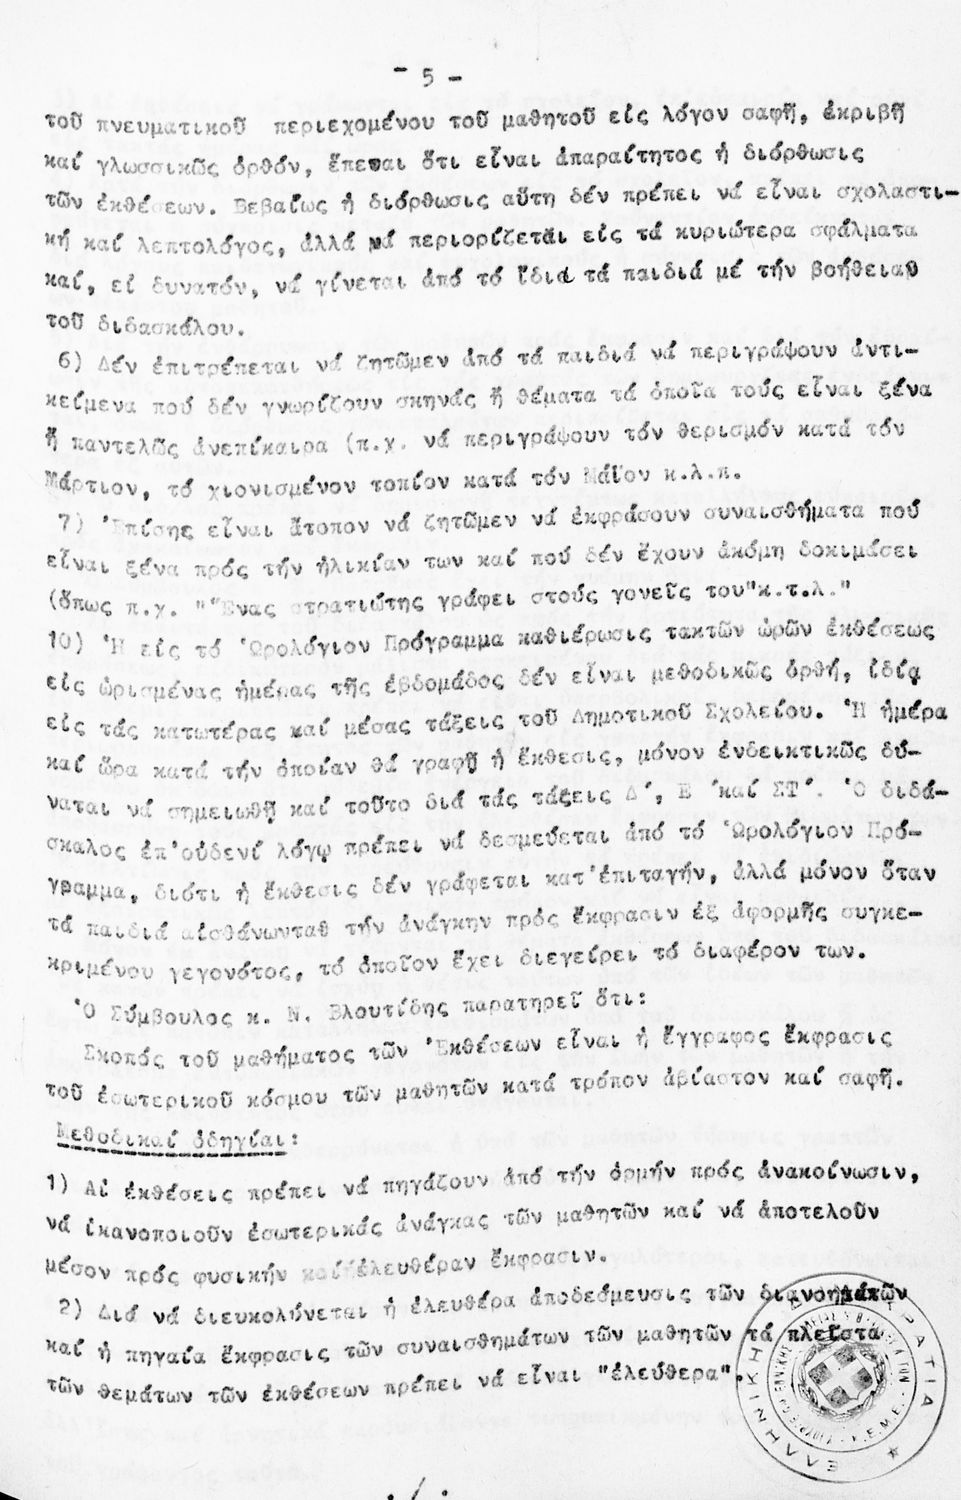 - 5 -
τοῦ πνευματικοῦ περιεχομένου τοῦ μαθητοῦ είς λόγον σαφῆ, ἀκριβῆ
καί γλωσσικῶς ὀρθόν, ἕπεται ὅτι εἶναι ἀπαραίτητος ἡ διόρθωσις
τῶν ἐκθέσεων. Βεβαίως ἡ διόρθωσις αὕτη δέν πρέπει νά εἶναι σχολαστι-
κή καί λεπτολόγος, ἀλλά νά περιορίζεται είς τά κυριώτερα σφάλματα
καί, εἰ δυνατόν, νά γίνεται ἀπό τό ἴδια τά παιδιά μέ τήν βοήθειαν
τοῦ διδασκάλου.
6) Δέν ἐπιτρέπεται νά ζητῶμεν ἀπό τά παιδιά νά περιγράψουν ἀντι-
κείμενα πού δέν γνωρίζουν σκηνάς ἤ θέματα τά ὁποῖα τούς εἶναι ξένα
ἤ παντελῶς ἀνεπίκαιρα (π.χ. νά περιγράψουν τόν θερισμόν κατά τόν
Μάρτιον, τό χιονισμένον τοπίον κατά τόν Μάϊον κ.λ.π.
7) Ἐπίσης εἶναι ἄτοπον νά ζητῶμεν νά ἐκφράσουν συναισθήματα πού
εἶναι ξένα πρός τήν ἡλικίαν των καί πού δέν ἔχουν ἀκόμη δοκιμάσει
(ὅπως π.χ. "Ἕνας στρατιώτης γράφει στούς γονεῖς του"κ.τ.λ."
10) Ἡ είς τό Ὡρολόγιον Πρόγραμμα καθιέρωσις τακτῶν ὡρῶν ἐκθέσεως
είς ὡρισμένας ἡμέρας τῆς ἑβδομάδος δέν εἶναι μεθοδικῶς ὀρθή, ἰδίᾳ
είς τάς κατωτέρας καί μέσας τάξεις τοῦ Δημοτικοῦ Σχολείου. Ἡ ἡμέρα
καί ὥρα κατά τήν ὁποίαν θά γραφῇ ἡ ἔκθεσις, μόνον ἐνδεικτικῶς δύ-
ναται νά σημειωθῇ καί τοῦτο διά τάς τάξεις Δ΄, Ε ΄καί ΣΤ΄. Ὁ διδά-
σκαλος ἐπ'οὐδενί λόγῳ πρέπει νά δεσμεύεται ἀπό τό Ὡρολόγιον Πρό-
γραμμα, διότι ἡ ἔκθεσις δέν γράφεται κατ'ἐπιταγήν, ἀλλά μόνον ὅταν
τά παιδιά αἰσθάνωνταθ τήν ἀνάγκην πρός ἔκφρασιν ἐξ ἀφορμῆς συγκε-
κριμένου γεγονότος, τό ὁποῖον ἔχει διεγείρει τό διαφέρον των.
Ὁ Σύμβουλος κ. Ν. Βλουτίδης παρατηρεῖ ὅτι:
Σκοπός τοῦ μαθήματος τῶν Ἐκθέσεων εἶναι ἡ ἔγγραφος ἔκφρασις
τοῦ ἐσωτερικοῦ κόσμου τῶν μαθητῶν κατά τρόπον ἀβίαστον καί σαφῆ.
Μεθοδικαί ὁδηγίαι:
1) Αἱ ἐκθέσεις πρέπει νά πηγάζουν ἀπό τήν ὁρμήν πρός ἀνακοίνωσιν,
νά ἱκανοποιοῦν ἐσωτερικάς ἀνάγκας τῶν μαθητῶν καί νά ἀποτελοῦν
μέσον πρός φυσικήν καί ἐλευθέραν ἔκφρασιν.
2) Διά νά διευκολύνεται ἡ ἐλευθέρα ἀποδέσμευσις τῶν διανοημάτων
καί ἡ πηγαία ἔκφρασις τῶν συναισθημάτων τῶν μαθητῶν τά πλεῖστα
τῶν θεμάτων τῶν ἐκθέσεων πρέπει νά εἶναι "ἐλεύθερα".
ΕΛΛΗΝΙΚΗ ΔΗΜΟΚΡΑΤΙΑ
Κ.Ε.Μ.Ε.
./.